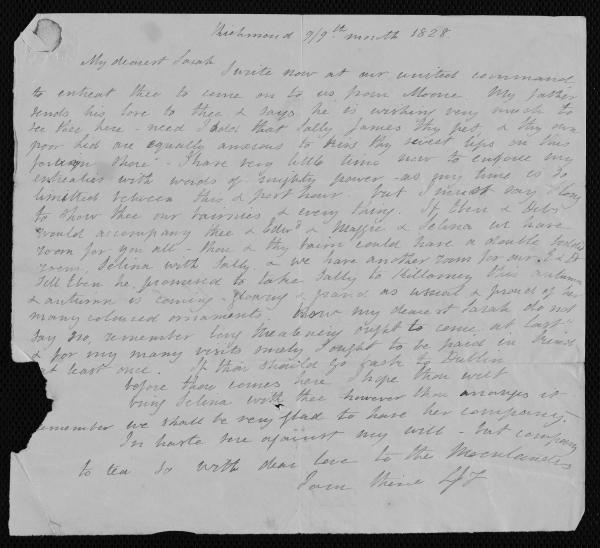 Richmond 9/9th month 1828.
My dearest Sarah
I write now at our united command
to entreat thee to come on to us from Moone My father
sends his love to thee & says he is wishing very much to
see thee here - need I add that Sally James thy pet, & thy own
poor Lid are equally anxious to kiss thy sweet lips on this
foreign shore - I have very little time now to enforce my
entreaties with words of mighty power - as my time is so
limitted between this & post hour. but I must say I long
to show thee our bairnies & every thing. If Eben & Deb
would accompany thee & Edwd & Maffie & Selina we have
room for you all - thou & thy bairn could have a double bedded
room, Selina with Sally, & we have another room for our
Tell Eben he promised to take Sally to Killarney this autumn
& autumn is coming - Hoary & grand as usual & proud of her
many coloured ornaments. Now my dearest Sarah do not
say no, remember long threatening ought to come at last
& for my many visits surely I ought to be paid in kind
at least once. If thou should go back to Dublin
before thou comes here I hope thou wilt
bring Selina with thee however thou arranges it
remember we shall be very glad to have her company.
In haste sore against my will - but company
to tea so with dear love to the
I am thine LJF